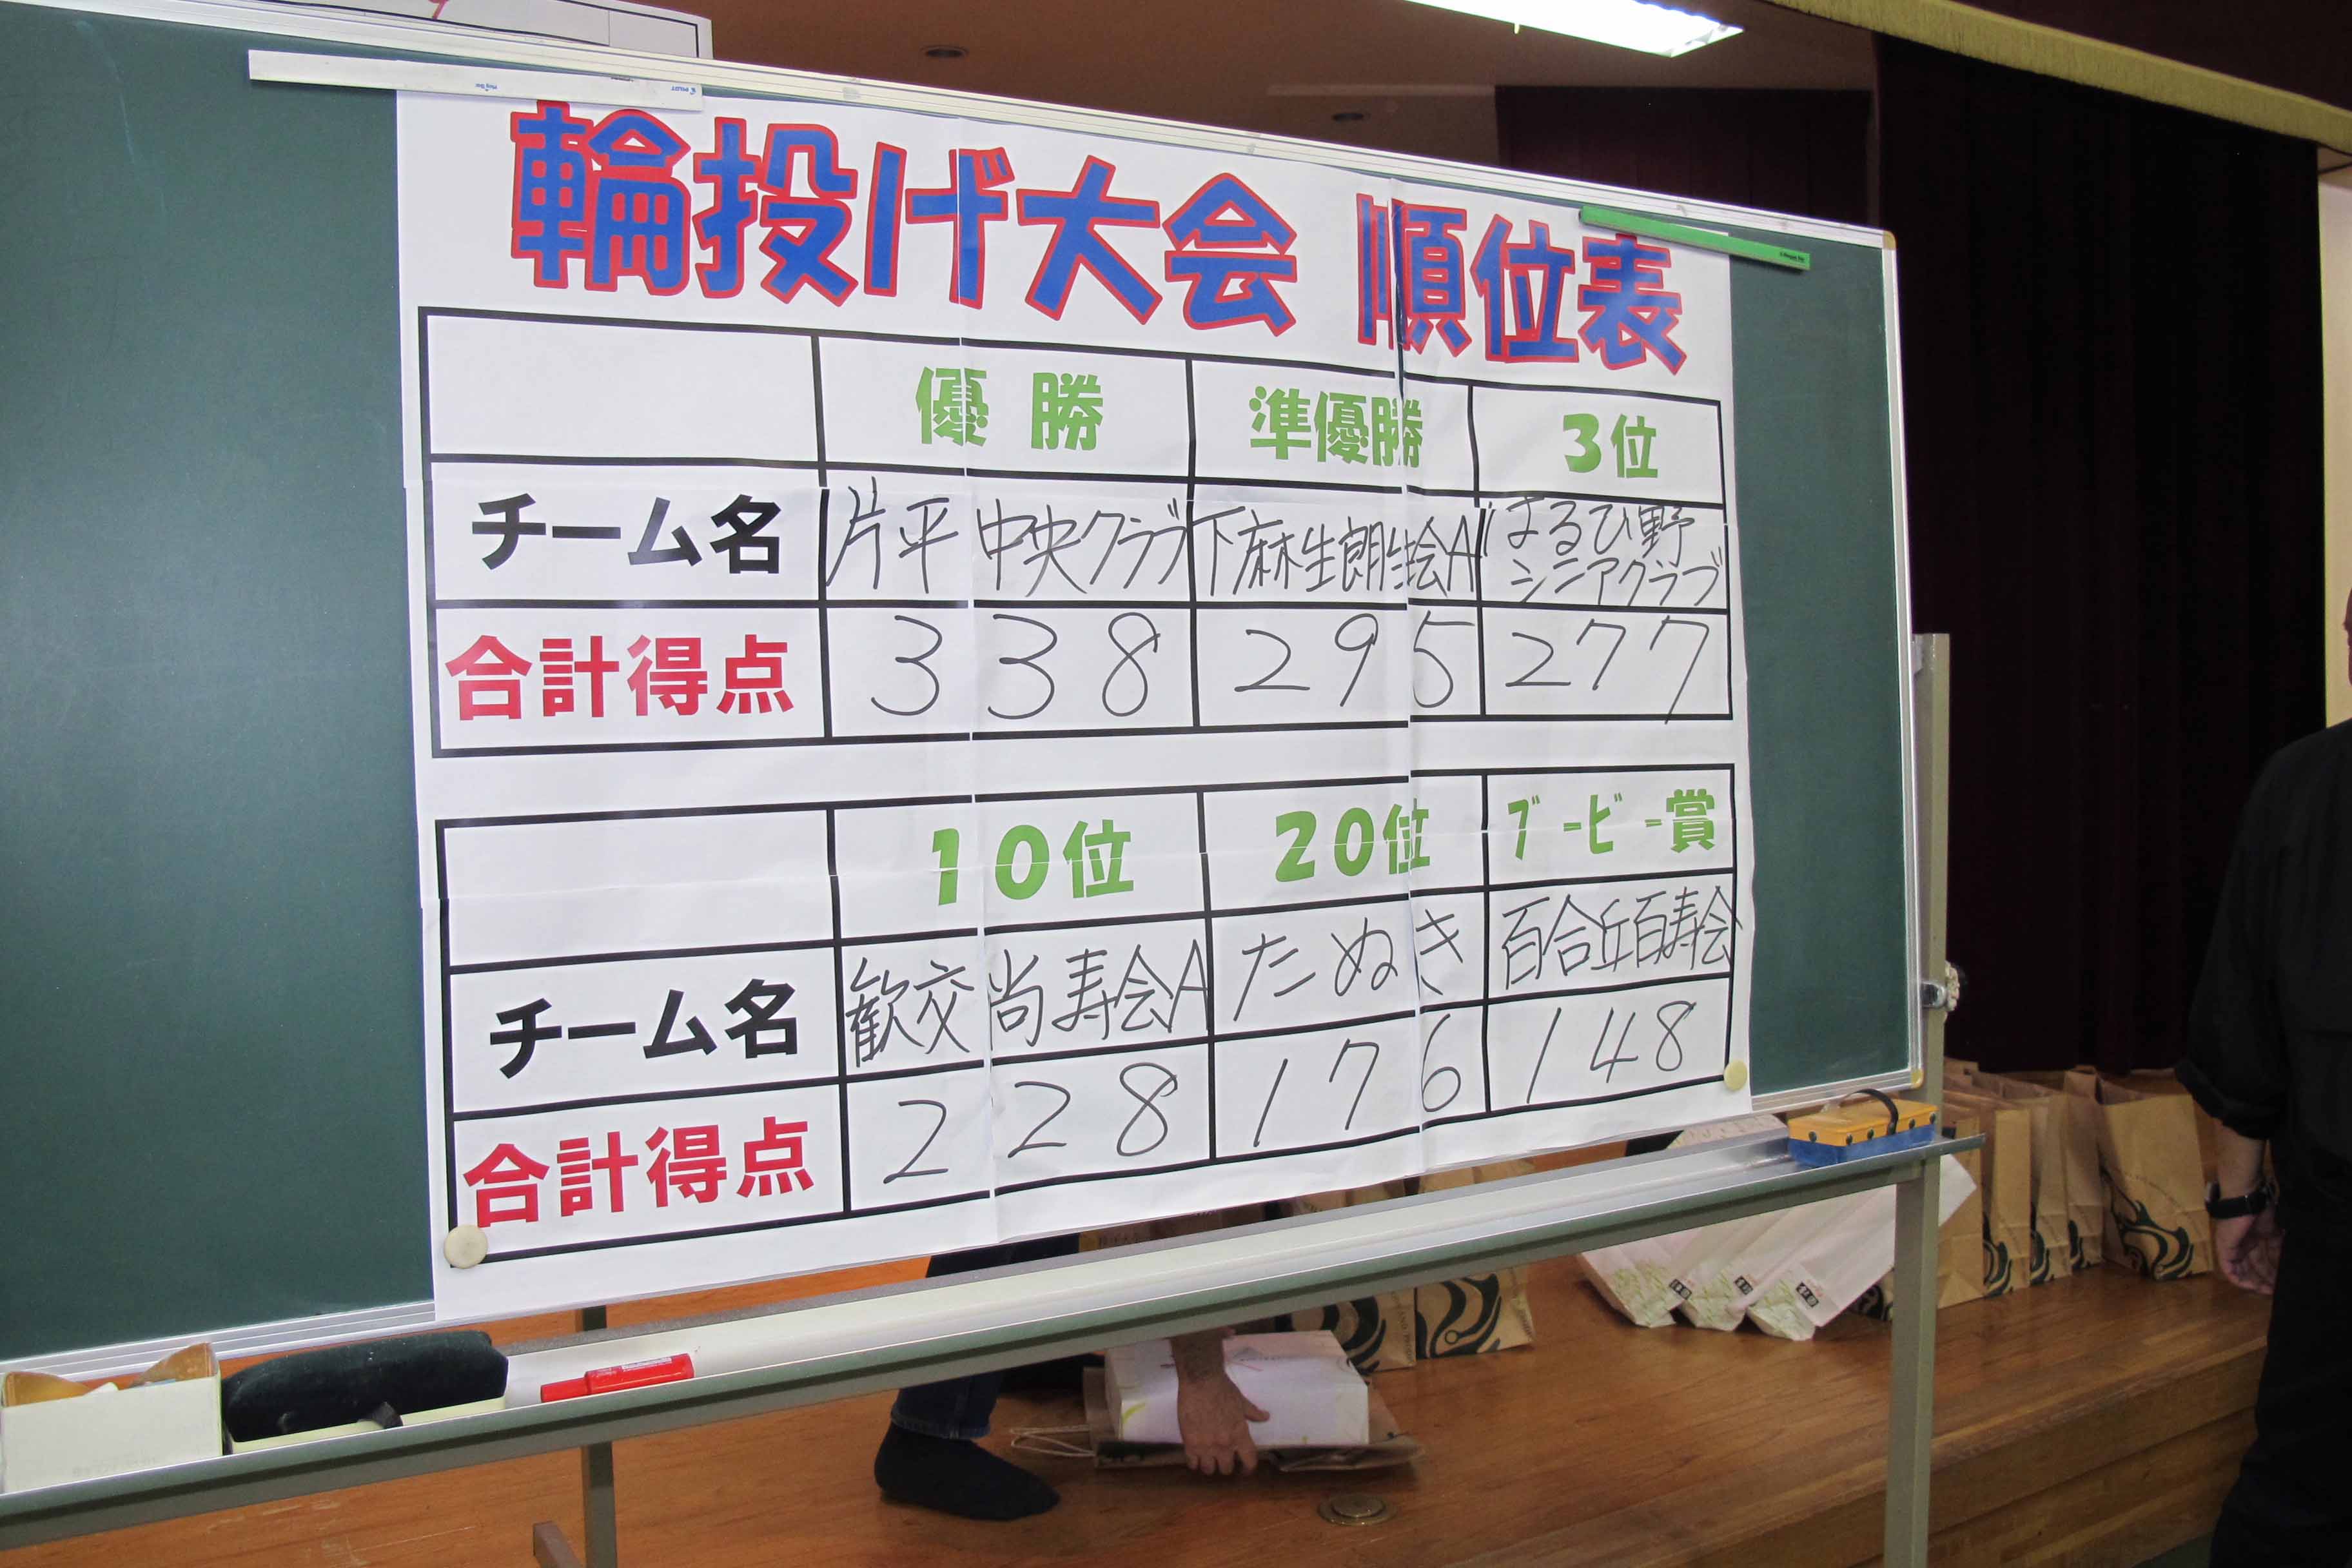 輪投げ大会 順位表
優勝 準優勝 3位
チーム名 片平中央クラブ 下麻生朗生会A はるひ野
シニアクラブ
合計得点 338 295 277
10位 20位 ブービー賞
チーム名 歓交尚寿会A たぬき 百合丘百寿会
合計得点 228 176 148